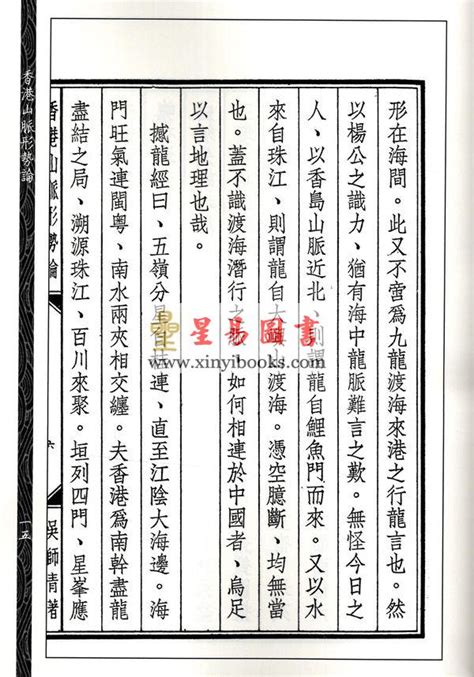 形在海間。此又不啻爲九龍渡海來港之行龍言也。然
以楊公之識力、猶有海中龍脈難言之歎。無怪今日之
人、以香島山脈近北、則謂龍自鯉魚門而來。又以水
來自珠江、則謂龍自大嶼山渡海。憑空臆斷、均無當
也。蓋不識渡海潛行之 如何相連於中國者、烏足
以言地理也哉。
撼龍經曰、五嶺分星自桂連、直至江陰大海邊。海
門旺氣連閩粵、南水兩夾相交纏。夫香港爲南幹盡龍
盡結之局、溯源珠江、百川來聚。垣列四門、星峯應
香港山脈形勢論
六
吳師青著
香港山脈形勢論
一五
星易圖書
www.xinyibooks.com